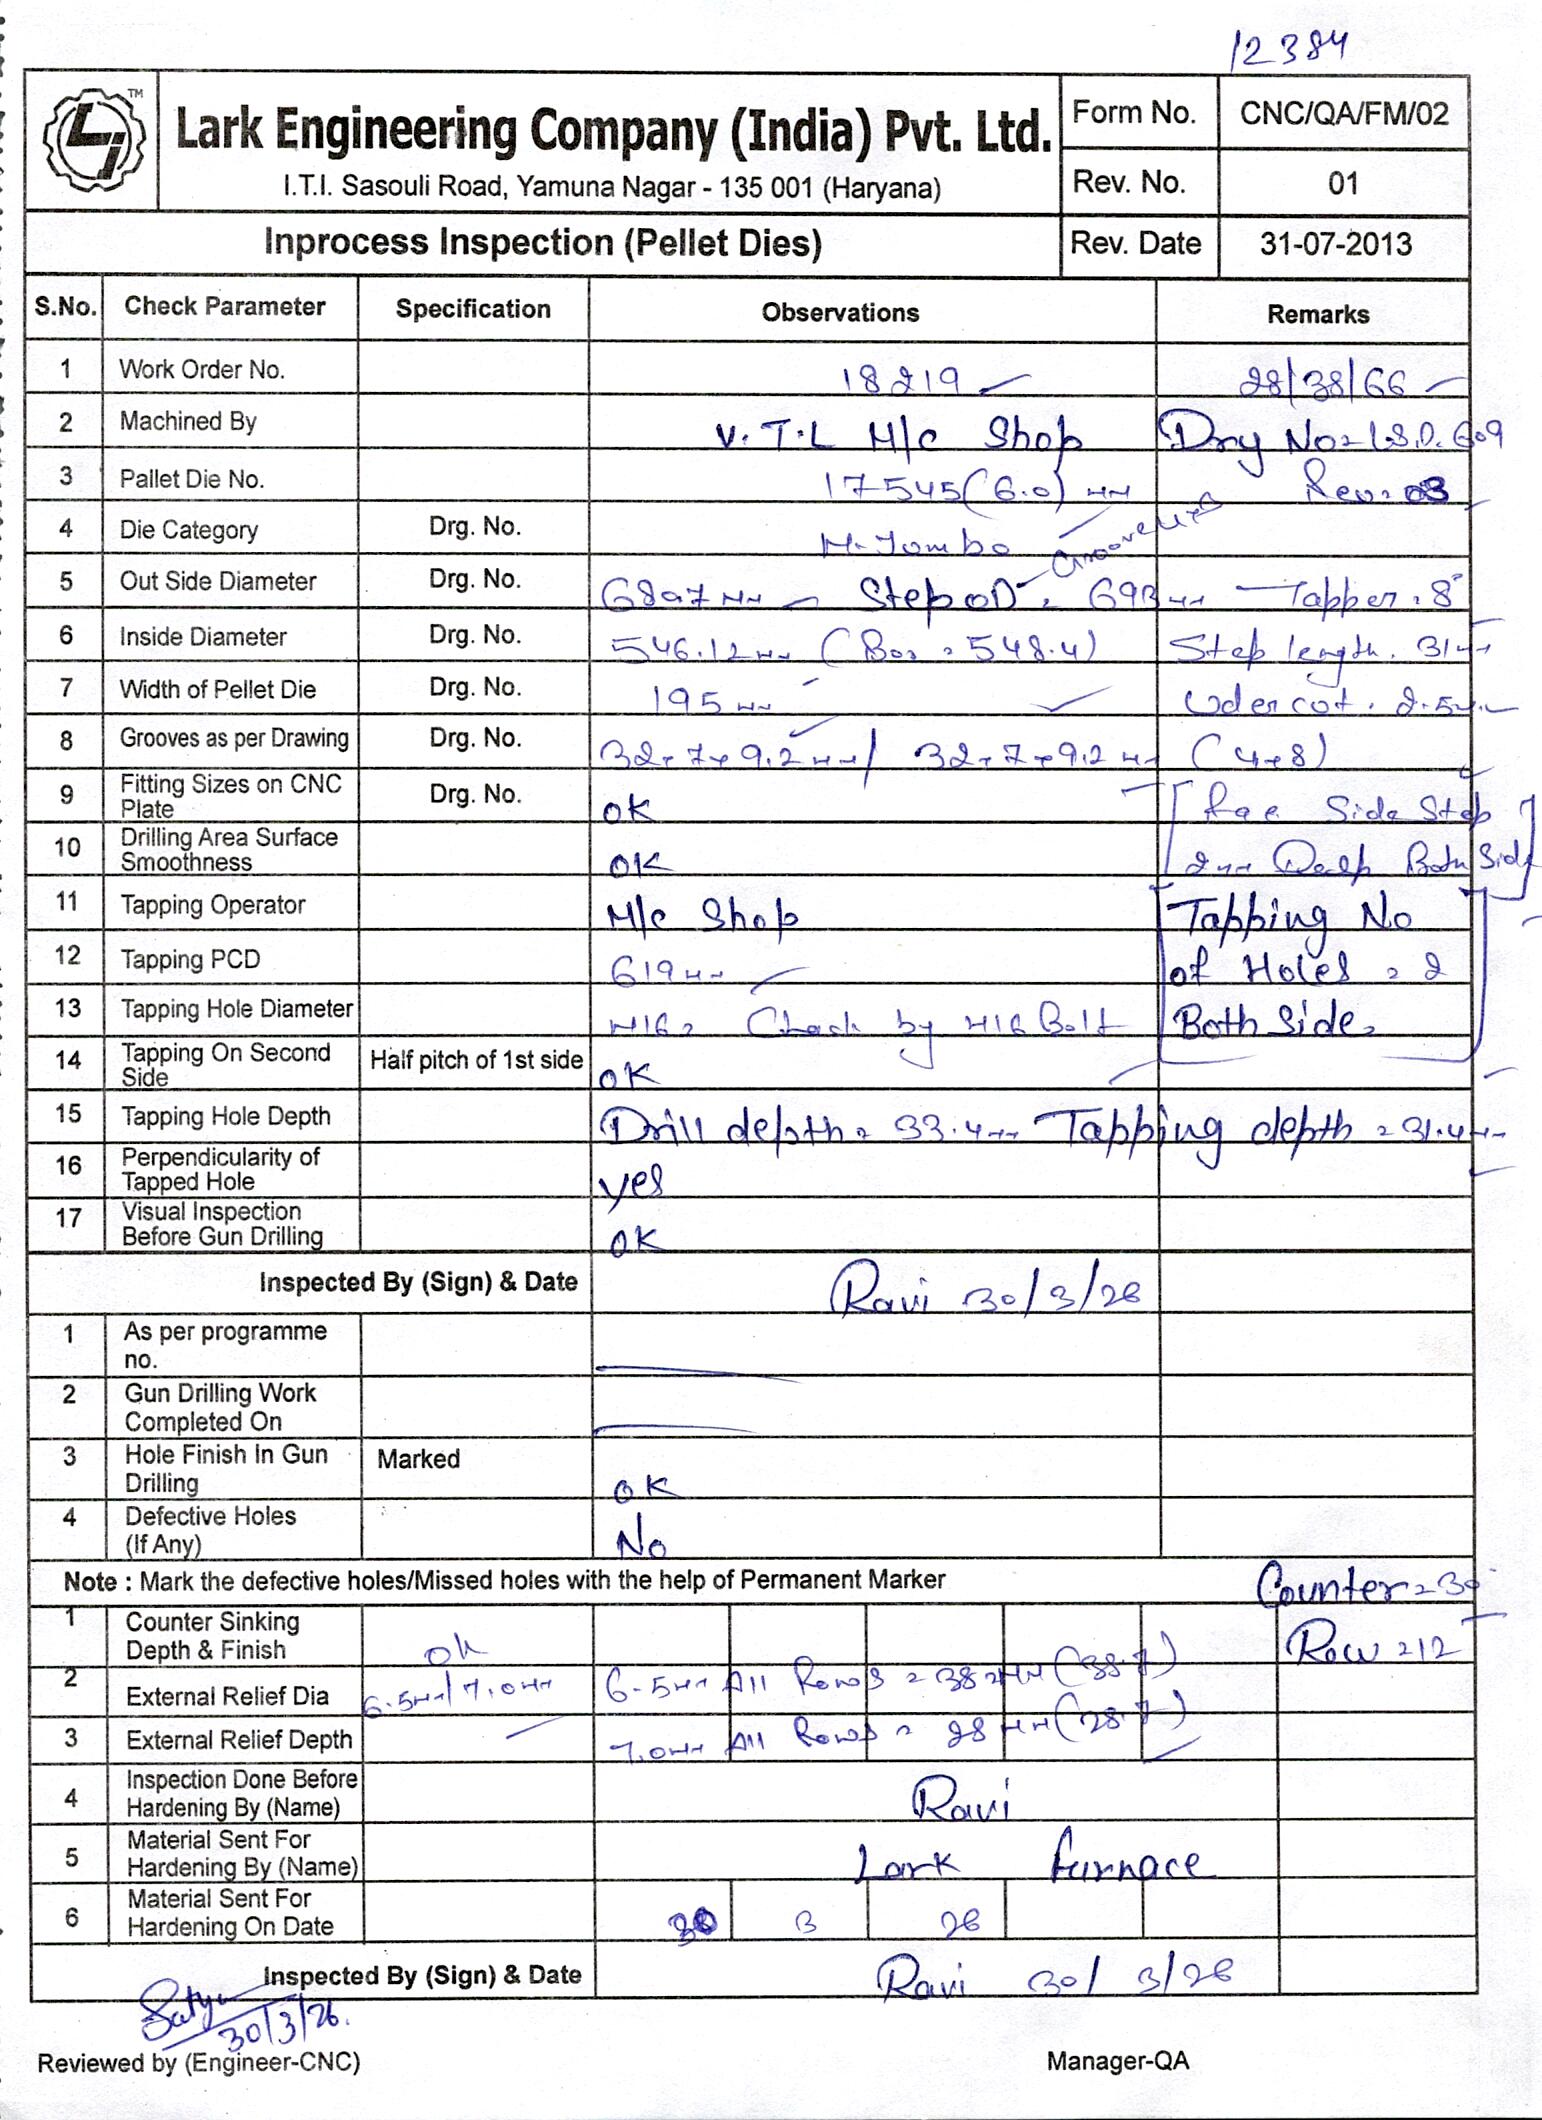 12384
TM
Lark Engineering Company (India) Pvt. Ltd.
I.T.I. Sasouli Road, Yamuna Nagar - 135 001 (Haryana)
Form No. CNC/QA/FM/02
Rev. No. 01
Inprocess Inspection (Pellet Dies) Rev. Date 31-07-2013
S.No. Check Parameter Specification Observations Remarks
1 Work Order No. 18219 28/38/66
2 Machined By V.T.L M/c Shop Dry No= L.S.D. 609
3 Pallet Die No. 17545(6.0) Rev= 03
4 Die Category Drg. No.
5 Out Side Diameter Drg. No. Step OD 693 Tapper = 8°
6 Inside Diameter Drg. No. 546.12 548.4) Step length = 31
7 Width of Pellet Die Drg. No. 195 2.5
8 Grooves as per Drawing Drg. No. 32x7x9.2 / 32x7x9.2 (4x8)
9 Fitting Sizes on CNC Plate Drg. No. OK Side Step
10 Drilling Area Surface Smoothness OK Both Side
11 Tapping Operator M/c Shop Tapping No
12 Tapping PCD 619 of Holes = 2
13 Tapping Hole Diameter M16 = Check by M16 Bolt Both Side
14 Tapping On Second Side Half pitch of 1st side OK
15 Tapping Hole Depth Drill depth = 33.4 Tapping depth = 31.4
16 Perpendicularity of Tapped Hole yes
17 Visual Inspection Before Gun Drilling OK
Inspected By (Sign) & Date Ravi 30/3/26
1 As per programme no.
2 Gun Drilling Work Completed On
3 Hole Finish In Gun Drilling Marked OK
4 Defective Holes (If Any) No
Note : Mark the defective holes/Missed holes with the help of Permanent Marker Counter = 30
1 Counter Sinking Depth & Finish ok Row = 12
2 External Relief Dia 6.5mm/7.0mm 6.5mm All Rows = 38 (38.7)
3 External Relief Depth 7.0mm All Rows = 28 mm (28.7)
4 Inspection Done Before Hardening By (Name) Ravi
5 Material Sent For Hardening By (Name) Lark furnace
6 Material Sent For Hardening On Date 30 3 26
Inspected By (Sign) & Date Ravi 30/3/26
Satyu
30/3/26.
Reviewed by (Engineer-CNC) Manager-QA